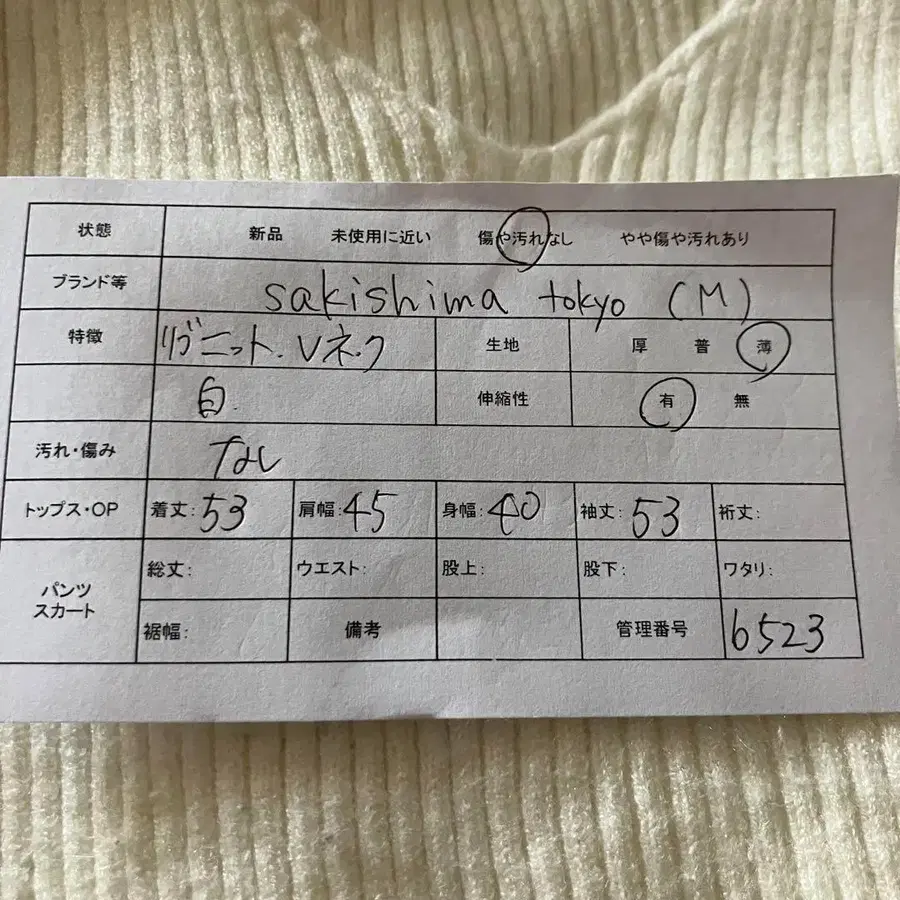 状態 新品 未使用に近い 傷や汚れなし やや傷や汚れあり
ブランド等 sakishima tokyo (M)
特徴 リブニット.Vネック 生地 厚 普 薄
白. 伸縮性 有 無
汚れ・傷み なし
トップス・OP 着丈: 53 肩幅: 45 身幅: 40 袖丈: 53 裄丈:
パンツ スカート 総丈: ウエスト: 股上: 股下: ワタリ:
裾幅: 備考 管理番号 6523